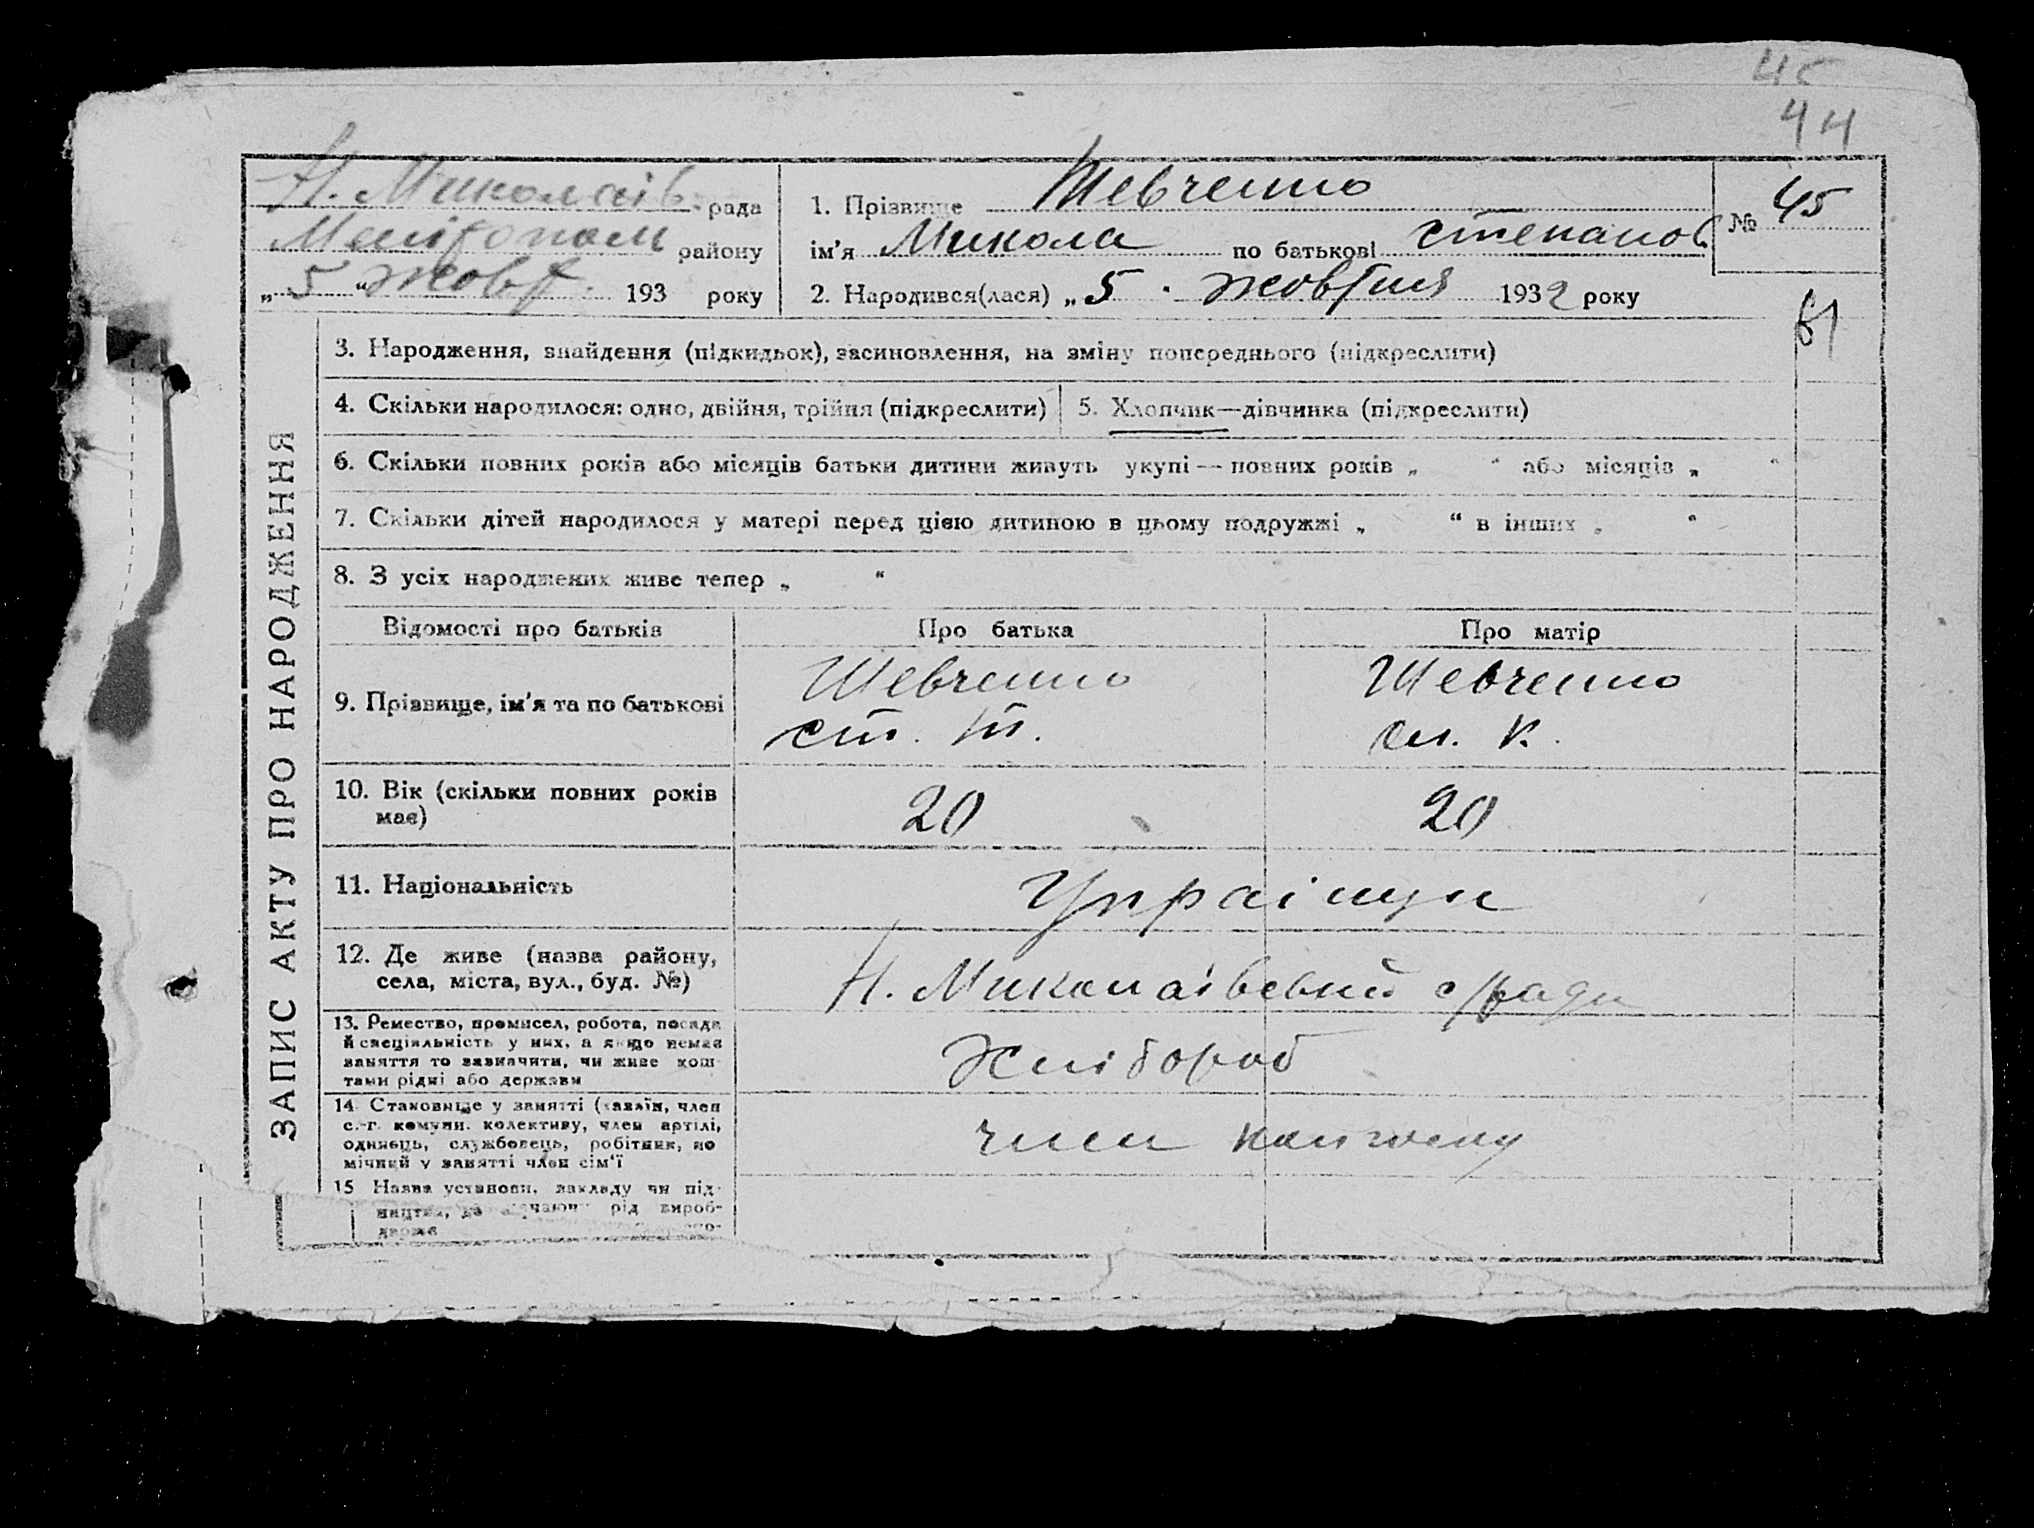 45
44
Н. Миколаїв. рада
Меліtопол району
„ 5 “ жовт. 193 року
1. Прізвище Шевченко
ім'я Микола по батькові Степанов.
2. Народився(лася) „ 5 . жовтня 1932 року
№ 45
ЗАПИС АКТУ ПРО НАРОДЖЕННЯ
3. Народження, знайдення (підкидьок), засиновлення, на зміну попереднього (підкреслити)
4. Скільки народилося: одно, двійня, трійня (підкреслити)
5. Хлопчик—дівчинка (підкреслити)
6. Скільки повних років або місяців батьки дитини живуть укупі — повних років „ “ або місяців „ “
7. Скільки дітей народилося у матері перед цією дитиною в цьому подружжі „ “ в інших „ “
8. З усіх народжених живе тепер „ “
Відомості про батьків Про батька Про матір
9. Прізвище, ім'я та по батькові
Шевченко
Ст. Т.
Шевченко
К.
10. Вік (скільки повних років
має)
20 20
11. Національність
Українци
12. Де живе (назва району,
села, міста, вул., буд. №)
Н. Миколаївський с/ради
13. Ремество, промисел, робота, посада
й спеціяльність у них, а якщо немає
заняття то зазначити, чи живе кош
тами рідні або держави
Хлібороб
14. Становище у занятті (хазяїн, член
с.-г. комуни, колективу, член артілі,
одинець, службовець, робітник, по
мічний у занятті член сім'ї
член колгоспу
15 Назва установи, закладу чи під-
рід вироб-